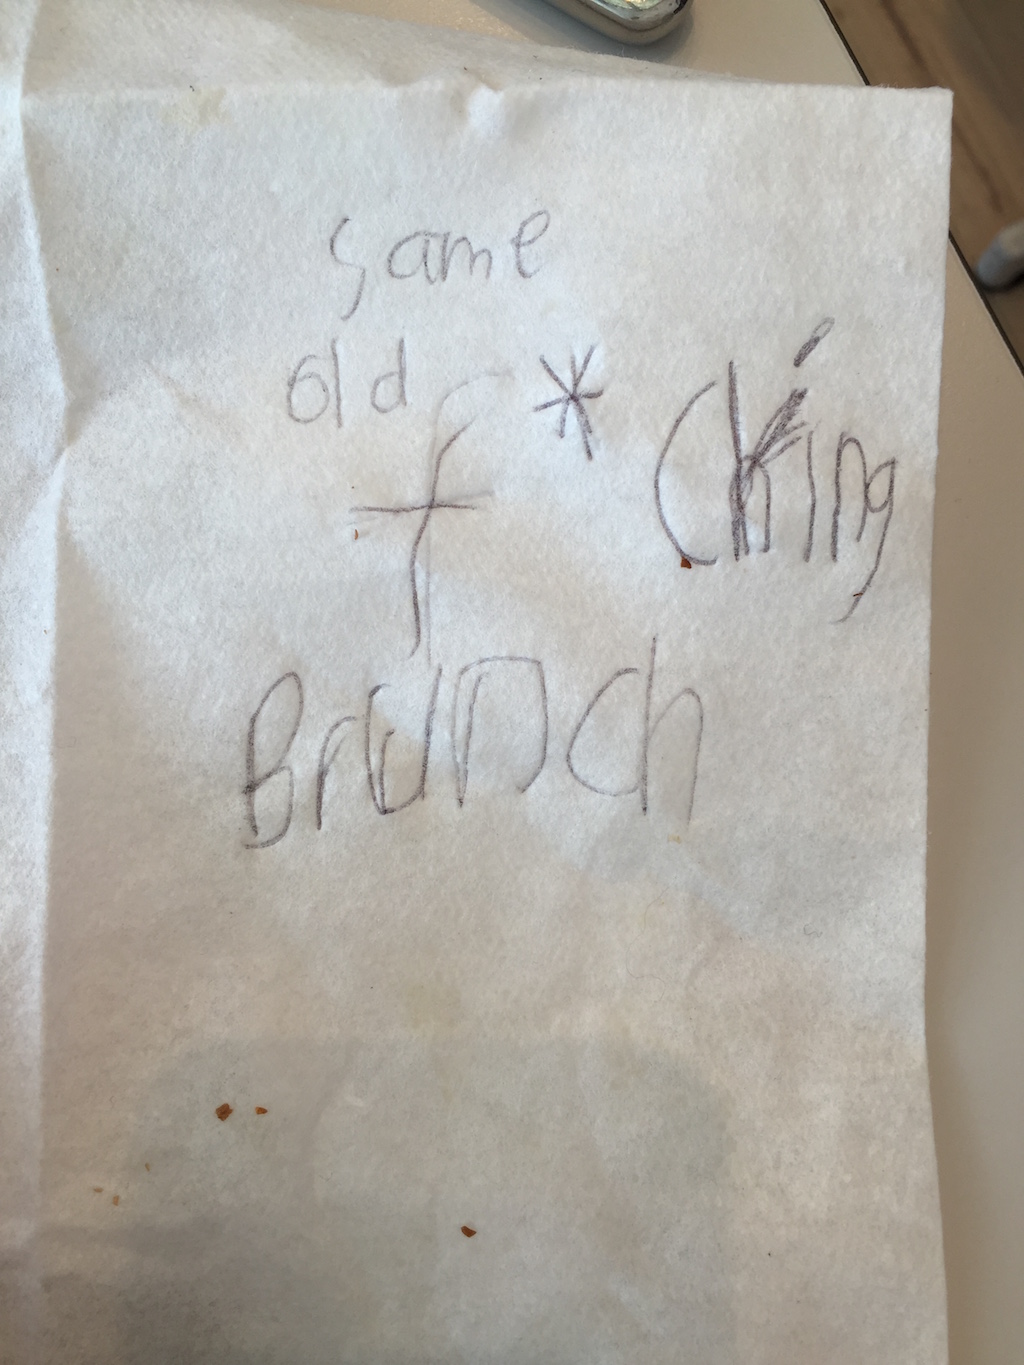 same
old
f*cking
Brunch